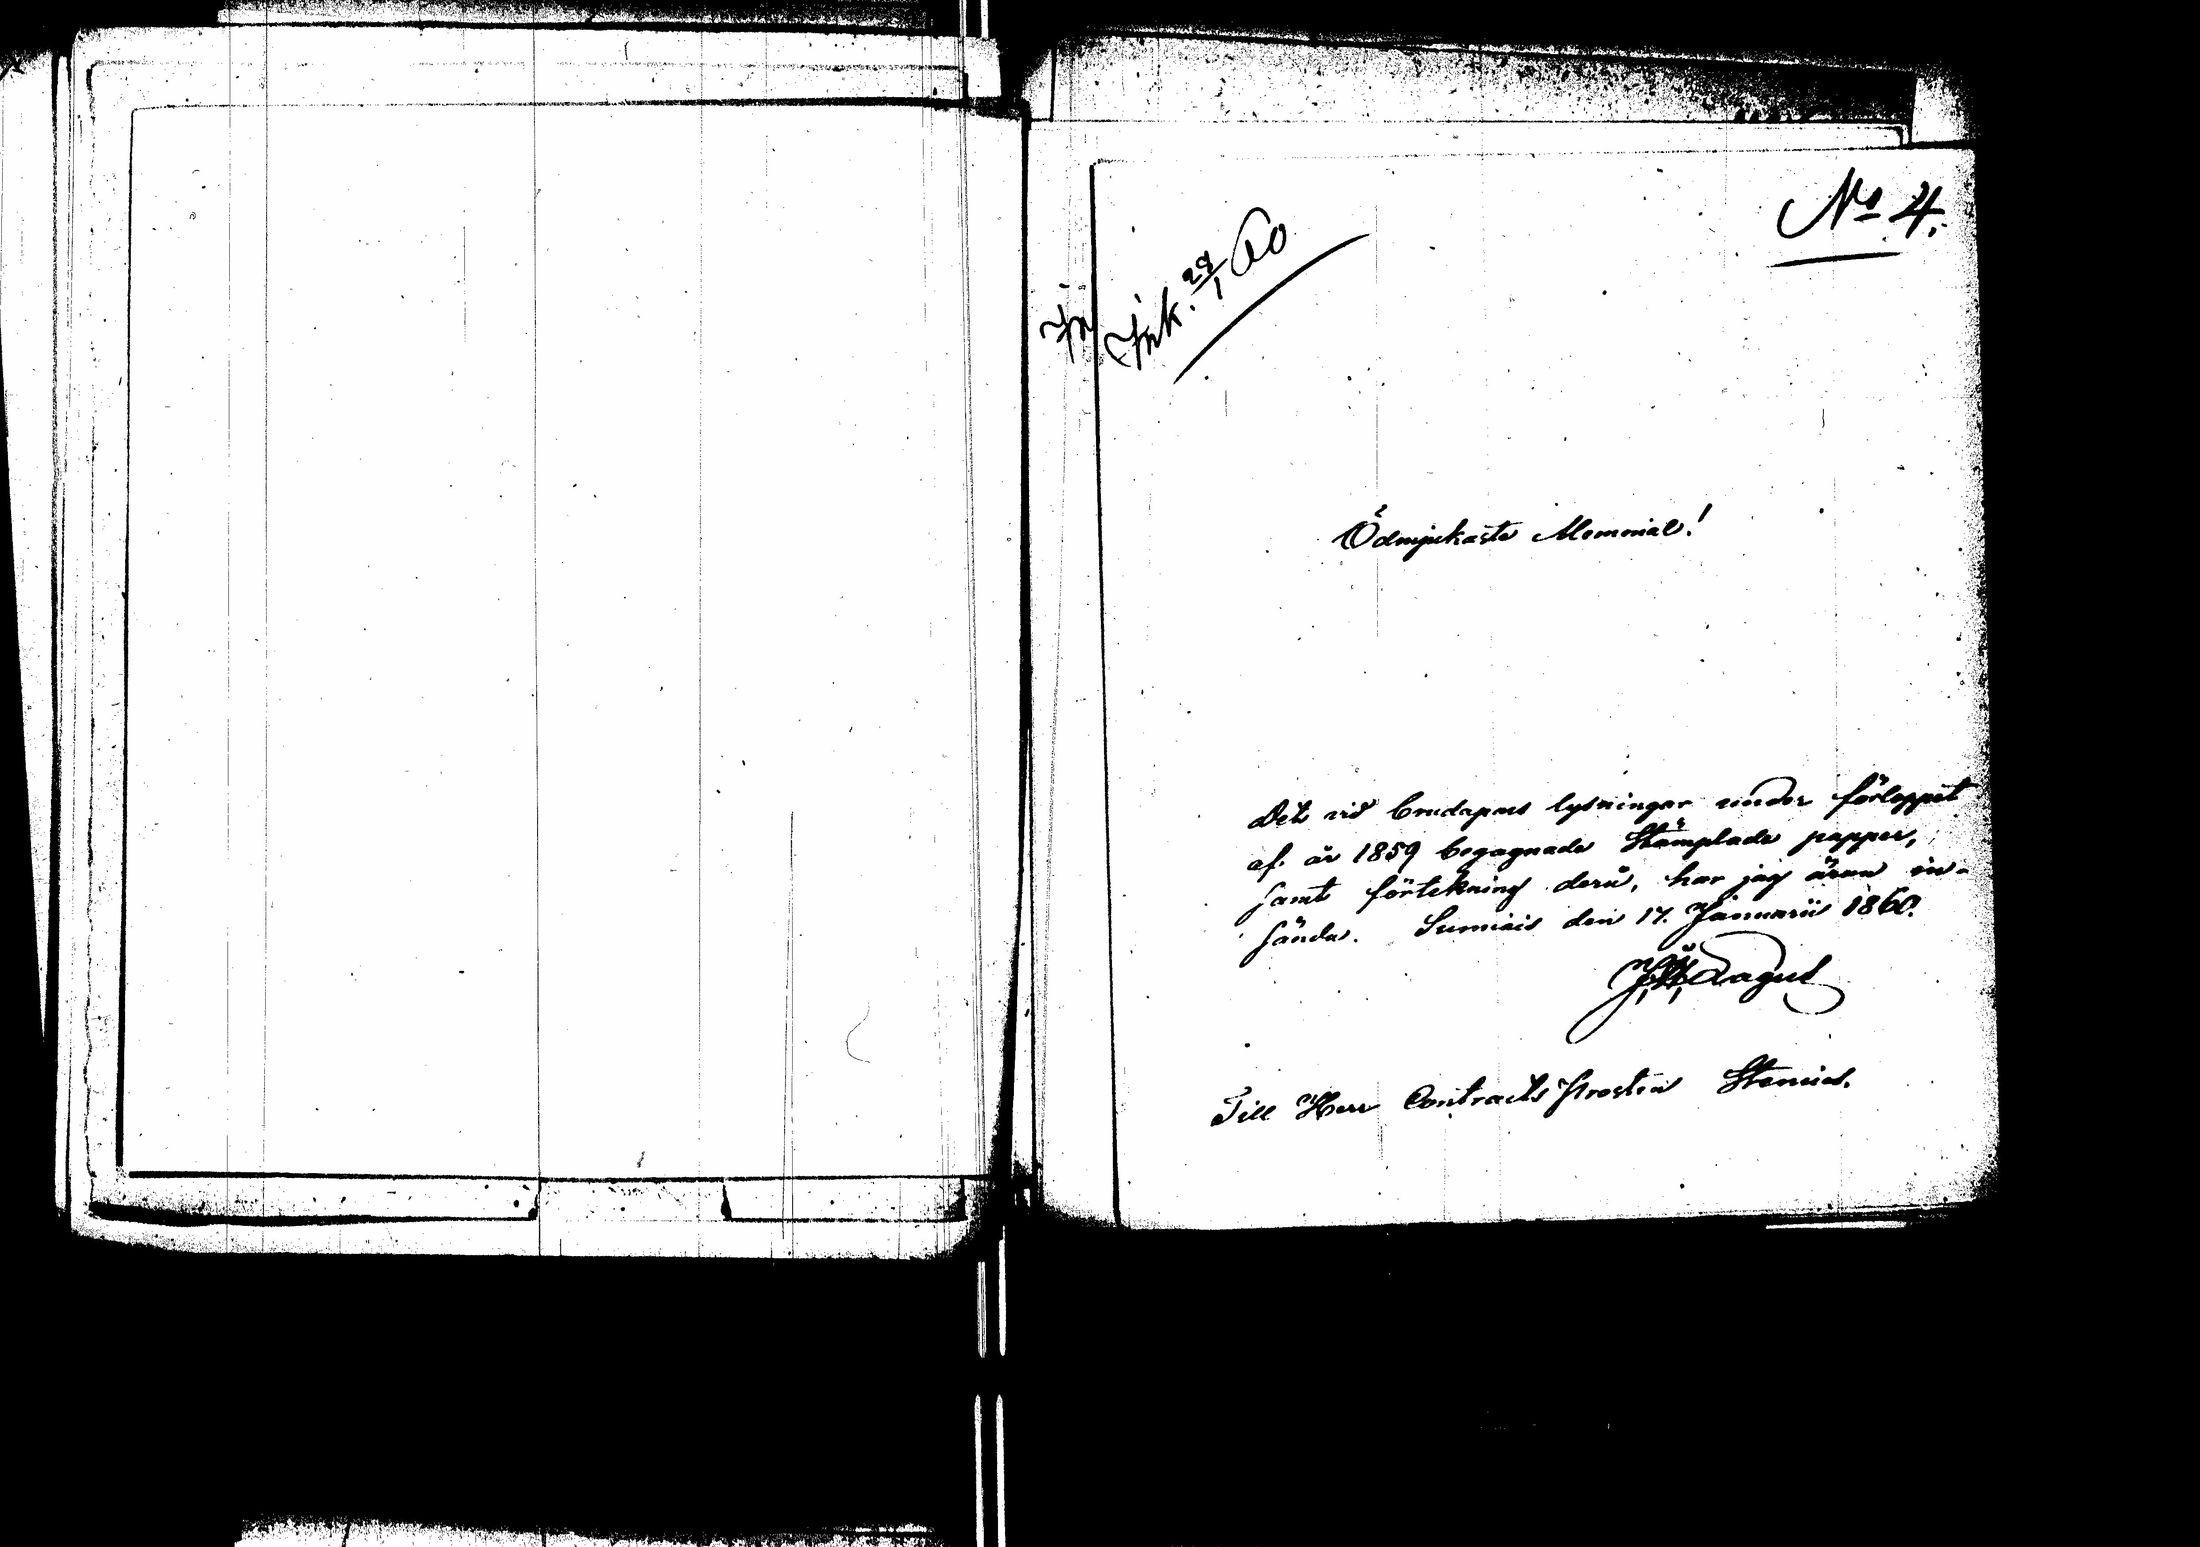 No 4.
Ink. 28/1 60
Ödmjukaste Memorial!
Det vid brudapars lysningar under förloppet
af år 1859 begagnade Stämplade papper,
samt förtekning derå, har jag äran in-
sända. Sumiais den 17. Januarii 1860.
J. W. Lagus
Till Herr Contracts Prosten Stenius.